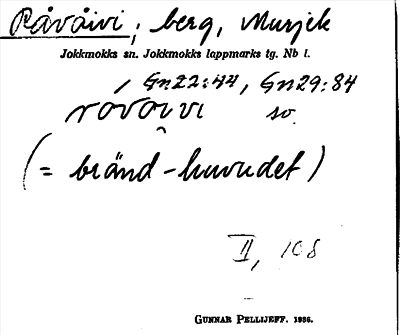 Råvåivi, berg, Murjek
Jokkmokks sn. Jokkmokks lappmarks tg. Nb l.
Gn22:44, Gn29:84
rovoivi so.
(= bränd-huvudet)
II, 108
GUNNAR PELLIJEFF. 1936.